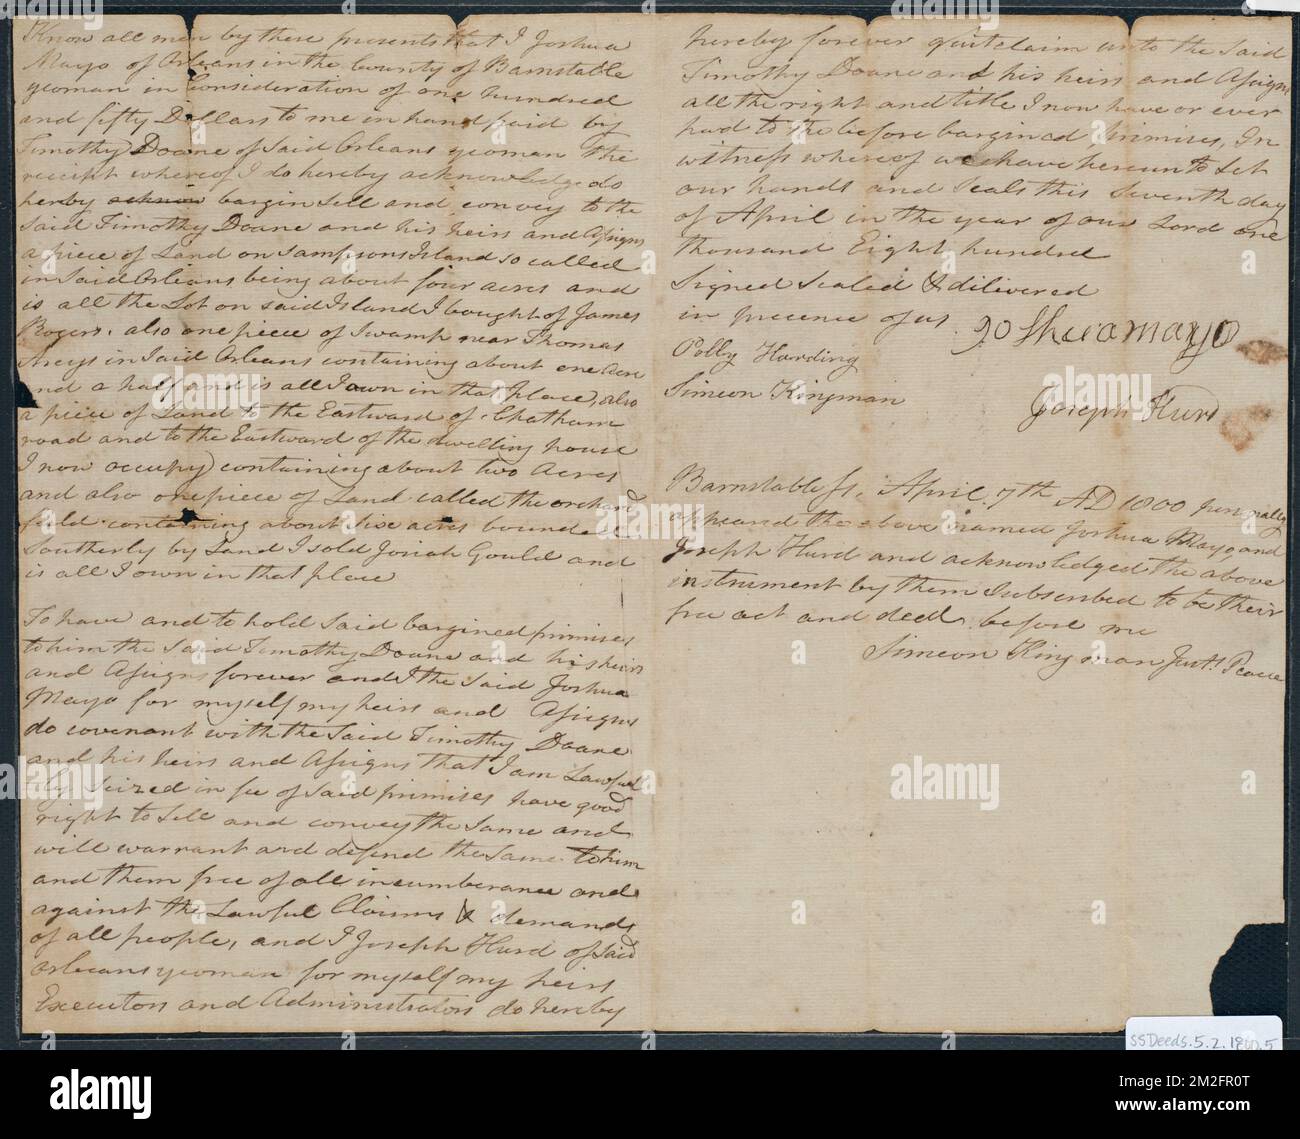 Know all men by these presents that I Joshua
Mayo of Orleans in the County of Barnstable
yeoman in Consideration of one hundred
and fifty Dollars to me in hand paid by
Timothy Doane of said Orleans yeoman the
receipt whereof I do hereby acknowledge do
herby acknow bargin sell and convey to the
said Timothy Doane and his heirs and Assigns
a piece of Land on Sampsons Island so called
in said Orleans being about four acres and
is all the Lot on said Island I bought of James
Rogers. also one piece of Swamp near Thomas
Areys in said Orleans containing about one acre
and a half and is all I own in that place, also
a piece of Land to the Eastward of Chatham
road and to the Eastward of the dwelling house
I now occupy containing about two Acres
and also one piece of Land called the orchard
field containing about Six acres bounded
Southerly by Land I sold Josiah Gould and
is all I own in that place
To have and to hold said bargined primises
to him the said Timothy Doane and his heirs
and Assigns forever and I the said Joshua
Mayo for myself my heirs and Assigns
do covenant with the said Timothy Doane
and his heirs and Assigns that I am Lawful
ly seized in fee of said primises have good
right to sell and convey the same and
will warrant and defend the same to him
and them free of all incumberance and
against the Lawful Claims & demands
of all people, and I Joseph Hurd of said
orleans yeoman for myself my heirs
Executors and Administrators do hereby
hereby forever quitclaim unto the said
Timothy Doane and his heirs and Assigns
all the right and title I now have or ever
had to the before bargined primises, In
witness whereof we have hereunto Set
our hands and Seals this Seventh day
of April in the year of our Lord one
thousand Eight hundred
Signed Sealed & dilivered
in presence of us
Joshua mayo
Polly Harding
Simeon Kingman
Joseph Hurd
Barnstable ss. April 7th AD 1800 personally
appeared the above named Joshua Mayo, and
Joseph Hurd and acknowledged the above
instrument by them Subscribed to be their
free act and deed before me
Simeon Kingman Just. Peace
SSDeeds.5.2.1800.5
alamy
Image ID: 2M2FR0T
www.alamy.com